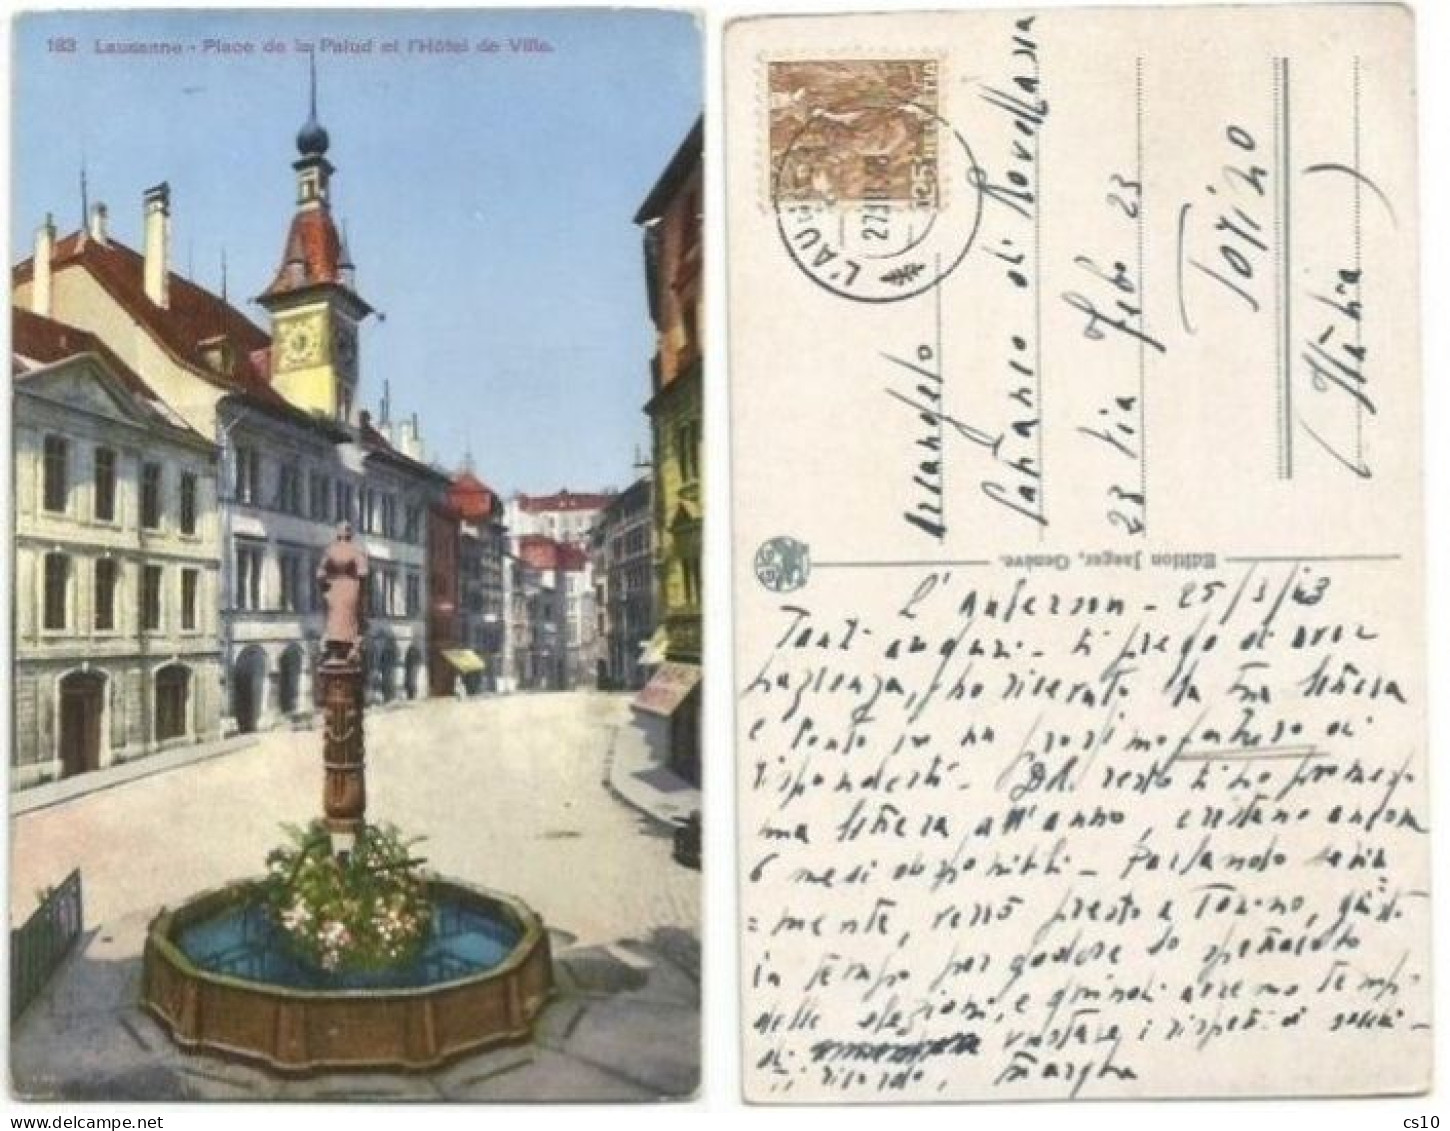 183 Lausanne - Place de la Palud et l'Hôtel de Ville.
HELVETIA
25
L'AU
27.III.48
Arcangelo
Santanso di Rovellasca
23 Via Febo 23
Torino
(Italia)
Edition Jaeger, Genève.
L'Auberson - 25/3/48
Tanti auguri - ti prego di aver
pazienza, ho ricevuto la tua lettera
e conto in un prossimo futuro di
risponderti - Del resto ti ho promes-
ma lettera all'anno, restano ancora
6 mesi disponibili - Parlando seria
=mente, verrò presto a Torino, giusto
in tempo per godere lo spettacolo
delle elezioni, e quindi avremo tempo
di vuotare i rispettivi
Ti ricordo,